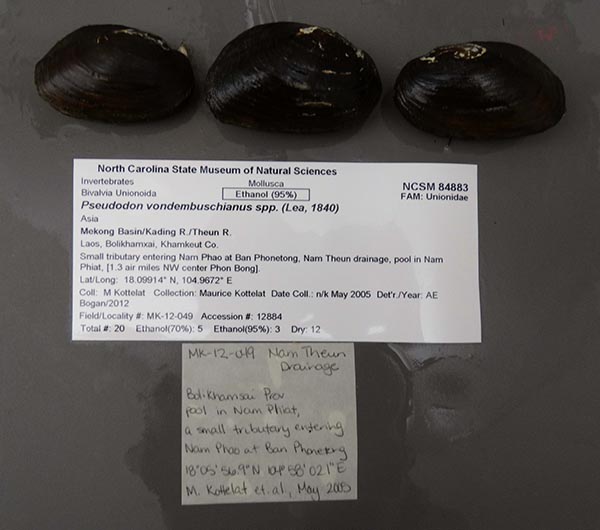 North Carolina State Museum of Natural Sciences
Invertebrates Mollusca NCSM 84883
Bivalvia Unionoida Ethanol (95%) FAM: Unionidae
Pseudodon vondembuschianus spp. (Lea, 1840)
Asia
Mekong Basin/Kading R./Theun R.
Laos, Bolikhamxai, Khamkeut Co.
Small tributary entering Nam Phao at Ban Phonetong, Nam Theun drainage, pool in Nam
Phiat, [1.3 air miles NW center Phon Bong].
Lat/Long: 18.09914° N, 104.9672° E
Coll: M Kottelat Collection: Maurice Kottelat Date Coll.: n/k May 2005 Det'r./Year: AE
Bogan/2012
Field/Locality #: MK-12-049 Accession #: 12884
Total #: 20 Ethanol(70%): 5 Ethanol(95%): 3 Dry: 12
MK-12-049 Nam Theun
Drainage
Bolikhamsai Prov
pool in Nam Phiat,
a small tributary entering
Nam Phao at Ban Phonetong
18°05'56.9"N 104°58'02.1"E
M. Kottelat et.al., May 2005